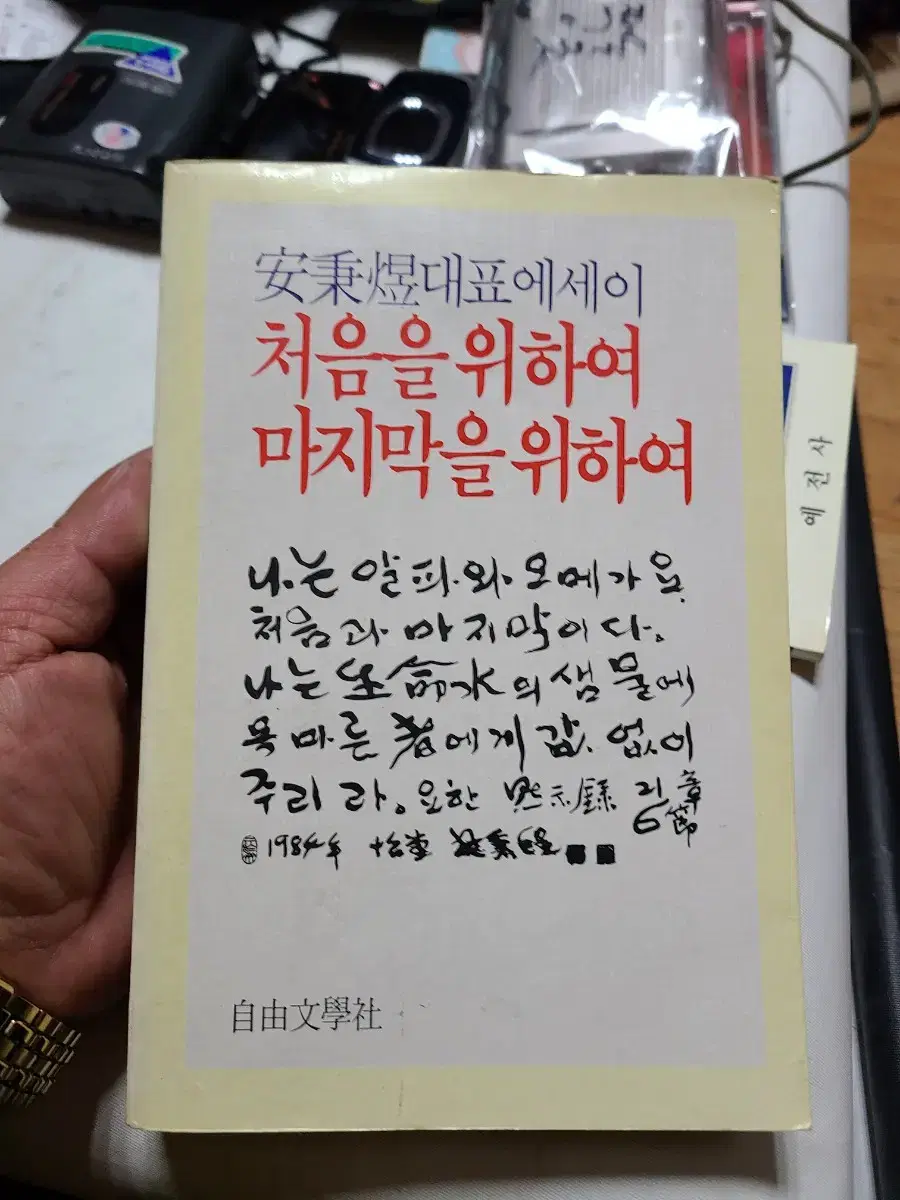 安秉煜대표에세이
처음을 위하여
마지막을 위하여
나는 알파와 오메가요.
처음과 마지막이다.
나는 生命水의 샘물에
목마른 者에게 값 없이
주리라。 요한 默示録 21章
6節
1984年
自由文學社
예전사